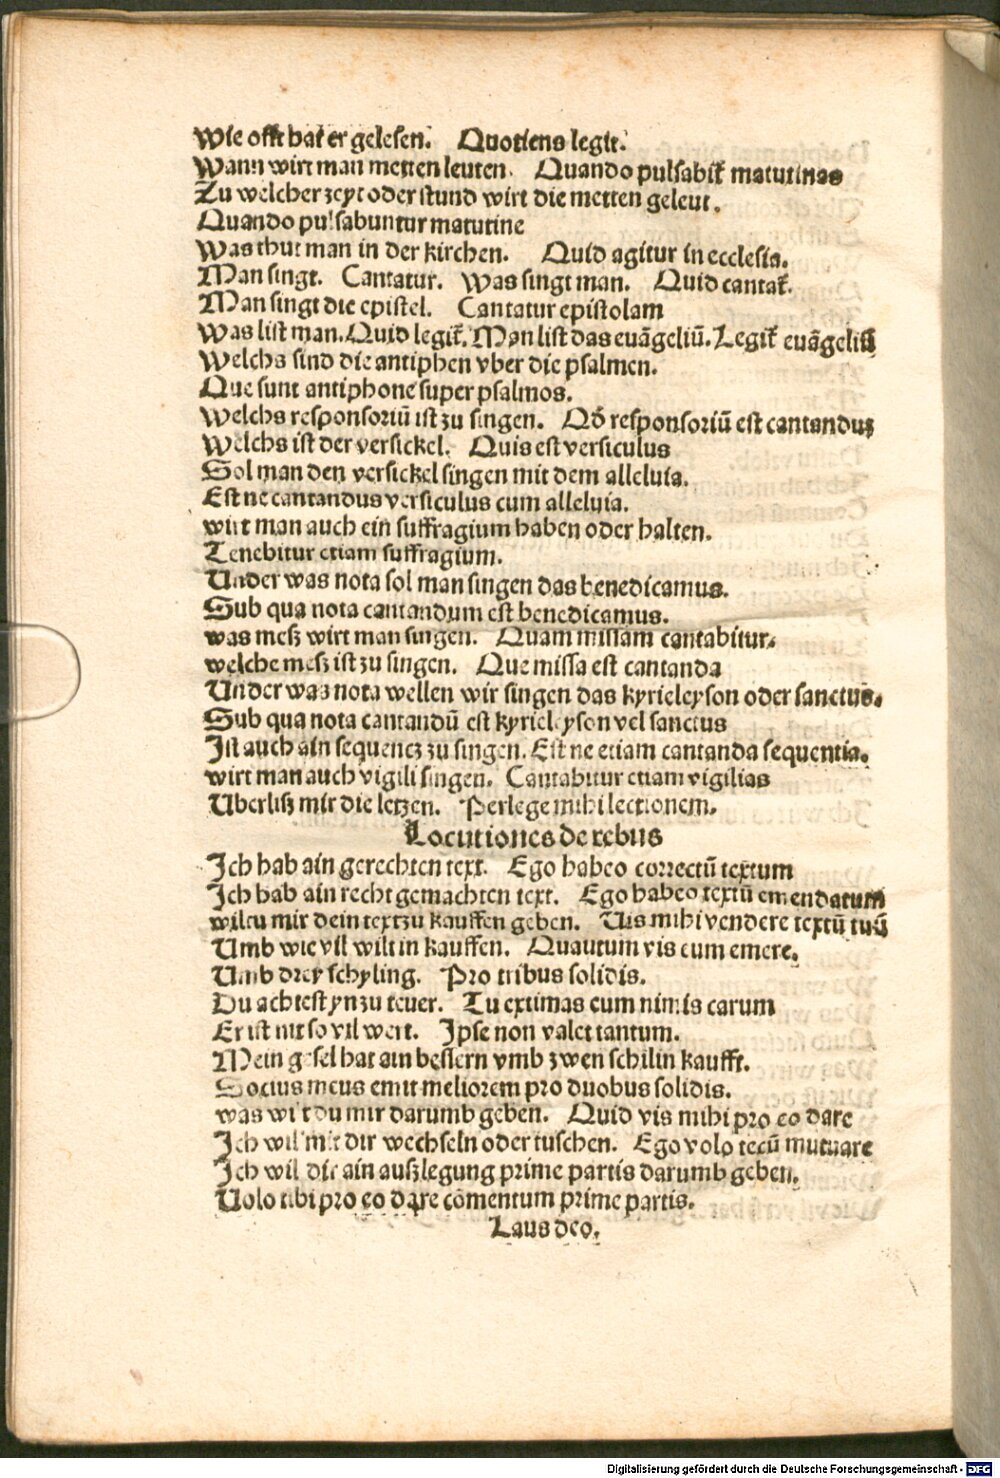 Wie offt hat er gelesen. Quotiens legit.
Wann wirt man metten leuten. Quando pulsabit̄ matutinas
Zu welcher zeyt oder stund wirt die metten geleut.
Quando pulsabuntur matutine
Was thut man in der kirchen. Quid agitur in ecclesia.
Man singt. Cantatur. Was singt man. Quid cantat̄.
Man singt die epistel. Cantatur epistolam
Was list man. Quid legit̄. Man list das euāgeliū. Legit̄ euāgeliū
Welchs sind die antiphen vber die psalmen.
Que sunt antiphone super psalmos.
Welchs responsoriū ist zu singen. Qd̄ responsoriū est cantanduz
Welchs ist der versickel. Quis est versiculus
Sol man den versickel singen mit dem alleluia.
Est ne cantandus versiculus cum alleluia.
wirt man auch ein suffragium haben oder halten.
Tenebitur etiam suffragium.
Under was nota sol man singen das benedicamus.
Sub qua nota cantandum est benedicamus.
was mesz wirt man singen. Quam missam cantabitur.
welche mesz ist zu singen. Que missa est cantanda
Under was nota wellen wir singen das kyrieleyson oder sanctus.
Sub qua nota cantandū est kyrieleyson vel sanctus
Ist auch ain sequencz zu singen. Est ne etiam cantanda sequentia.
wirt man auch vigili singen. Cantabitur etiam vigilias
Uberlisz mir die letzen. Perlege mihi lectionem.
Locutiones de rebus
Ich hab ain gerechten text. Ego habeo correctū textum
Ich hab ain recht gemachten text. Ego habeo textū emendatum
wiltu mir dein text zu kauffen geben. Uis mihi vendere textū tuū
Umb wie vil wilt in kauffen. Quautum vis eum emere.
Umb drey schyling. Pro tribus solidis.
Du achtest yn zu teuer. Tu extimas eum nimis carum
Er ist nit so vil wert. Ipse non valet tantum.
Mein gesel hat ain bessern vmb zwen schilin kaufft.
Socius meus emit meliorem pro duobus solidis.
was wilt du mir darumb geben. Quid vis mihi pro eo dare
Ich wil mit dir wechseln oder tuschen. Ego volo tecū mutuare
Ich wil dir ain auszlegung prime partis darumb geben.
Uolo tibi pro eo dare cōmentum prime partis.
Laus deo.
Digitalisierung gefördert durch die Deutsche Forschungsgemeinschaft - DFG